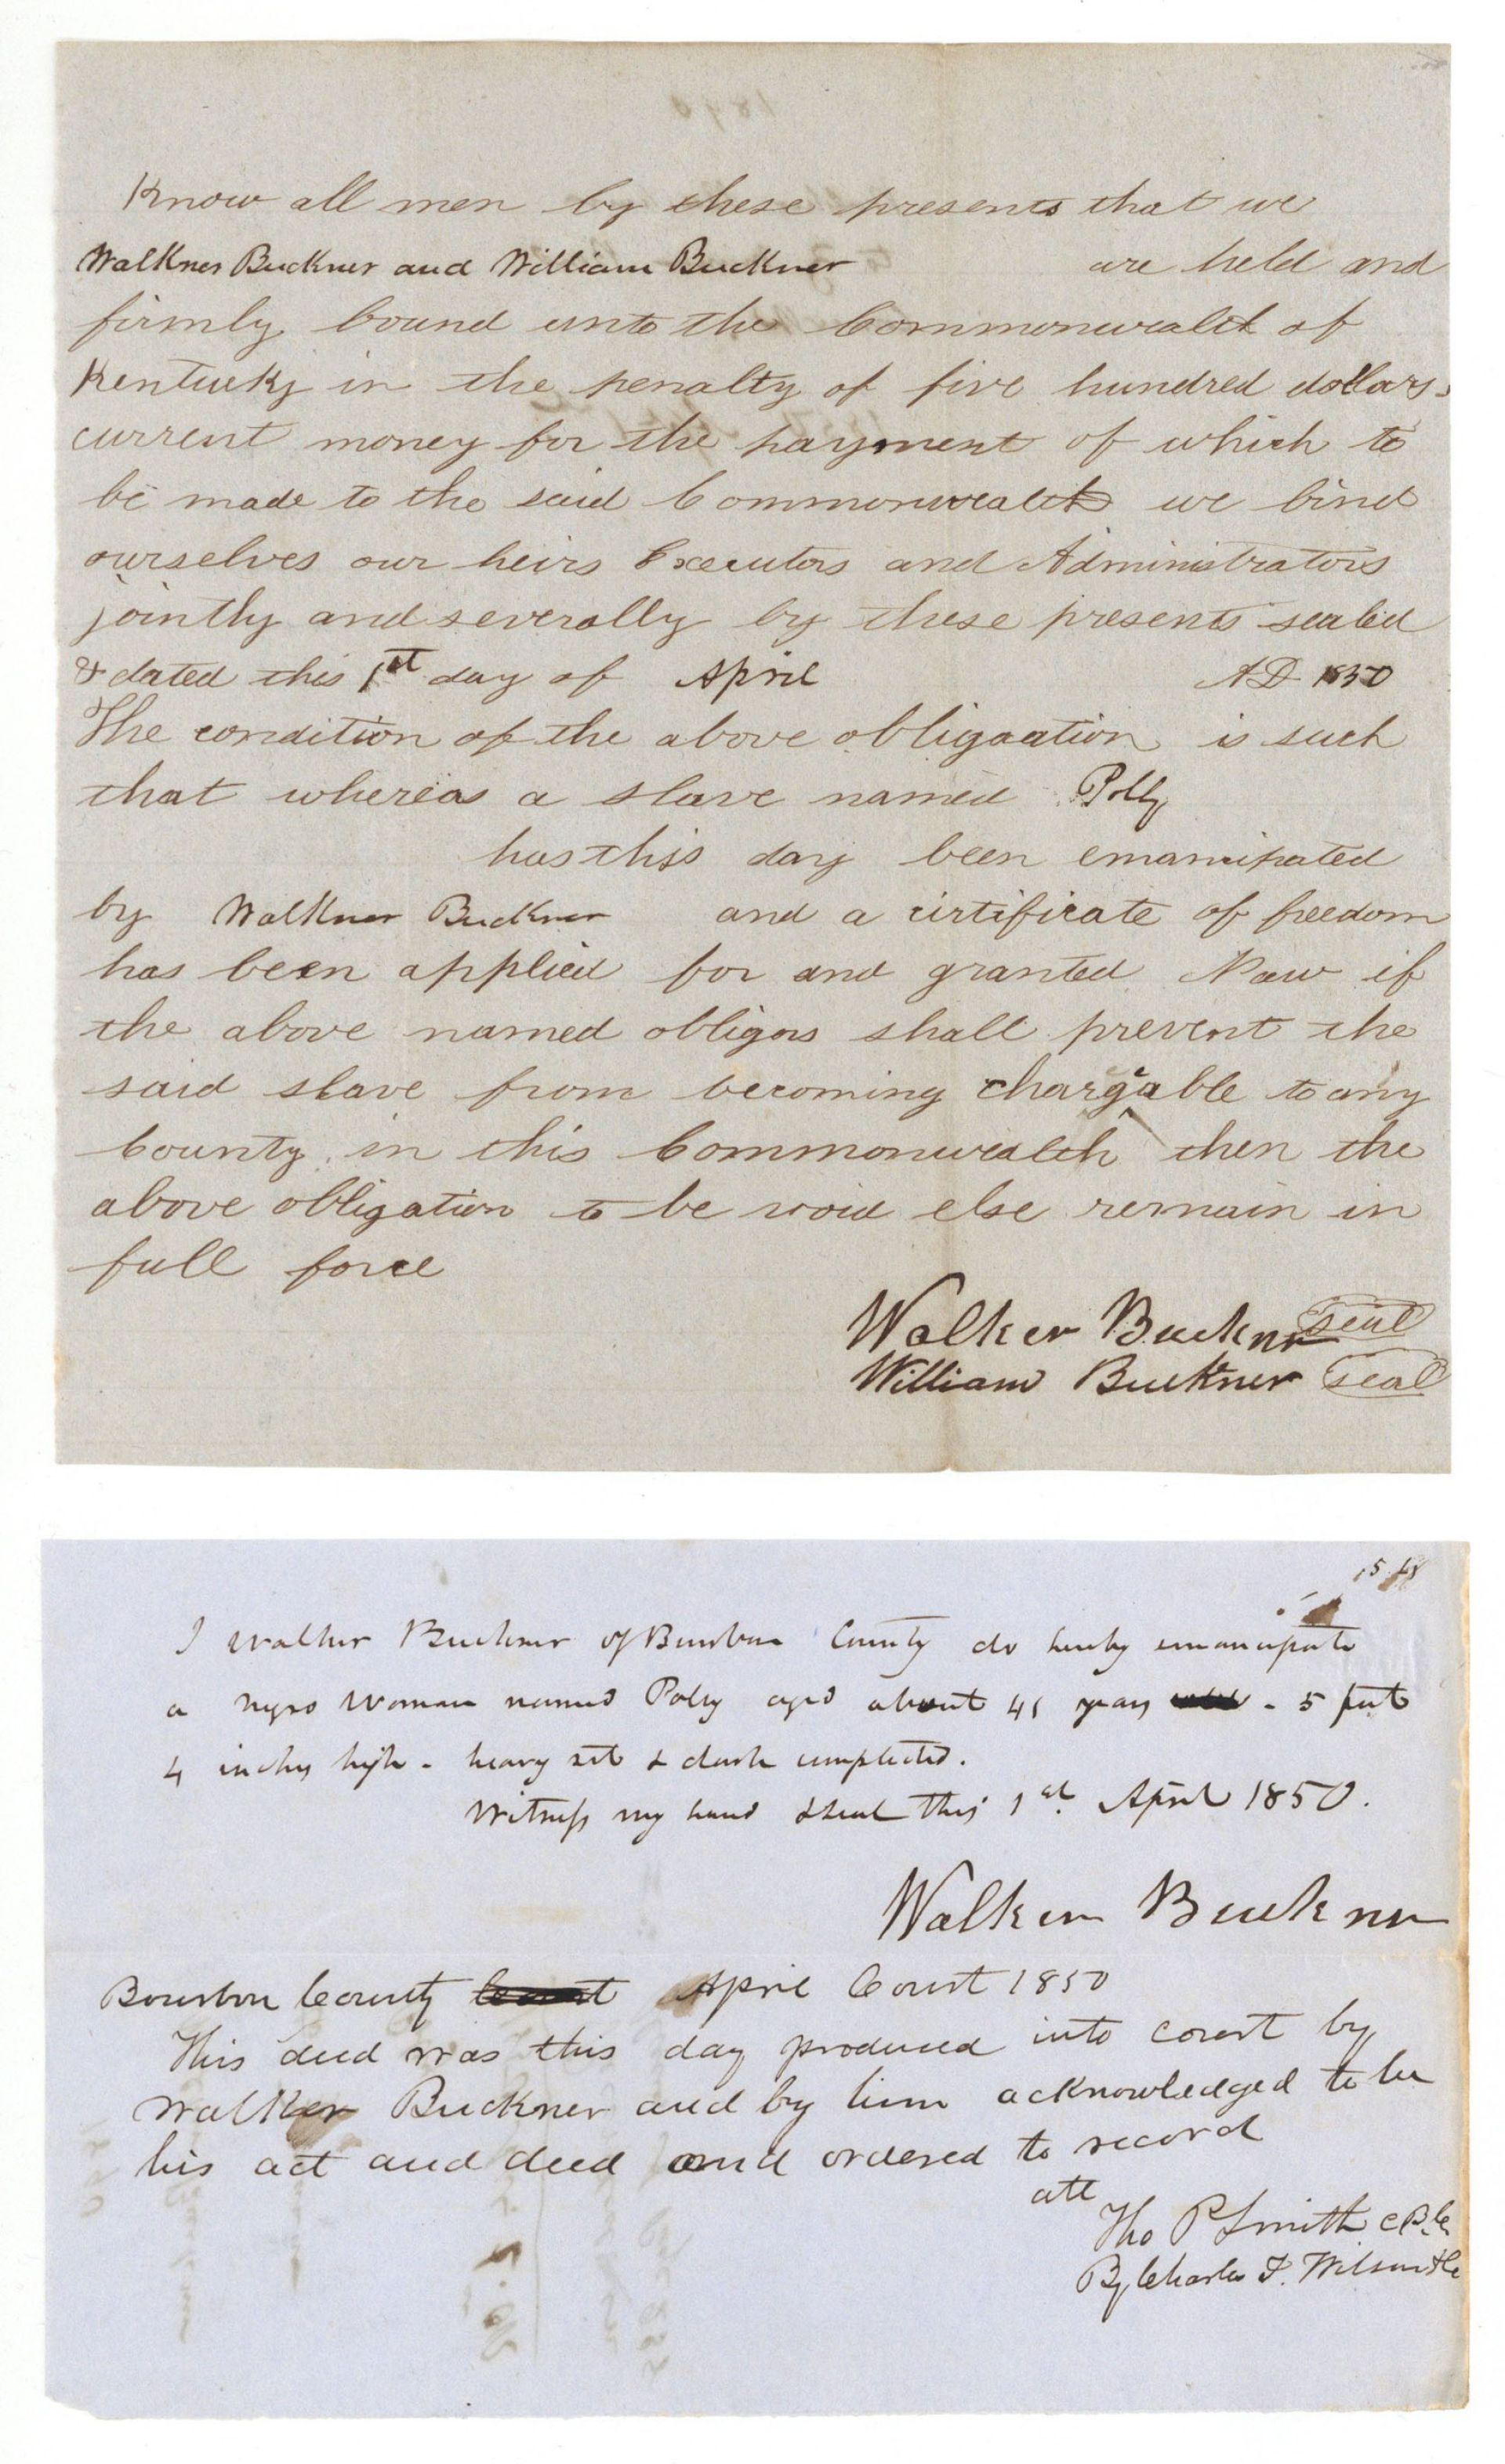 Know all men by these presents that we
Walkner Buckner and William Buckner are held and
firmly bound unto the Commonwealth of
Kentucky in the penalty of five hundred dollars
current money for the payment of which to
be made to the said Commonwealth we bind
ourselves our heirs Executors and Administrators
jointly and severally by these presents sealed
& dated this 1st day of April AD 1850
The condition of the above obligaation is such
that whereas a slave named Polly
has this day been emancipated
by Walkner Buckner and a cirtificate of freedom
has been applied for and granted Now if
the above named obligors shall prevent the
said slave from becoming chargeable to any
County in this Commonwealth then the
above obligation to be void else remain in
full force
Walker Buckner seal
William Buckner seal
I Walker Buckner of Bourbon County do hereby emancipate
a negro woman named Polly aged about 41 years - 5 feet
4 inches high - heavy set & dark complected.
Witness my hand & seal this 1st. April 1850.
Walker Buckner
Bourbon County April Court 1850
This deed was this day produced into court by
Walker Buckner and by him acknowledged to be
his act and deed and ordered to record
att
Tho P Smith
By Charles